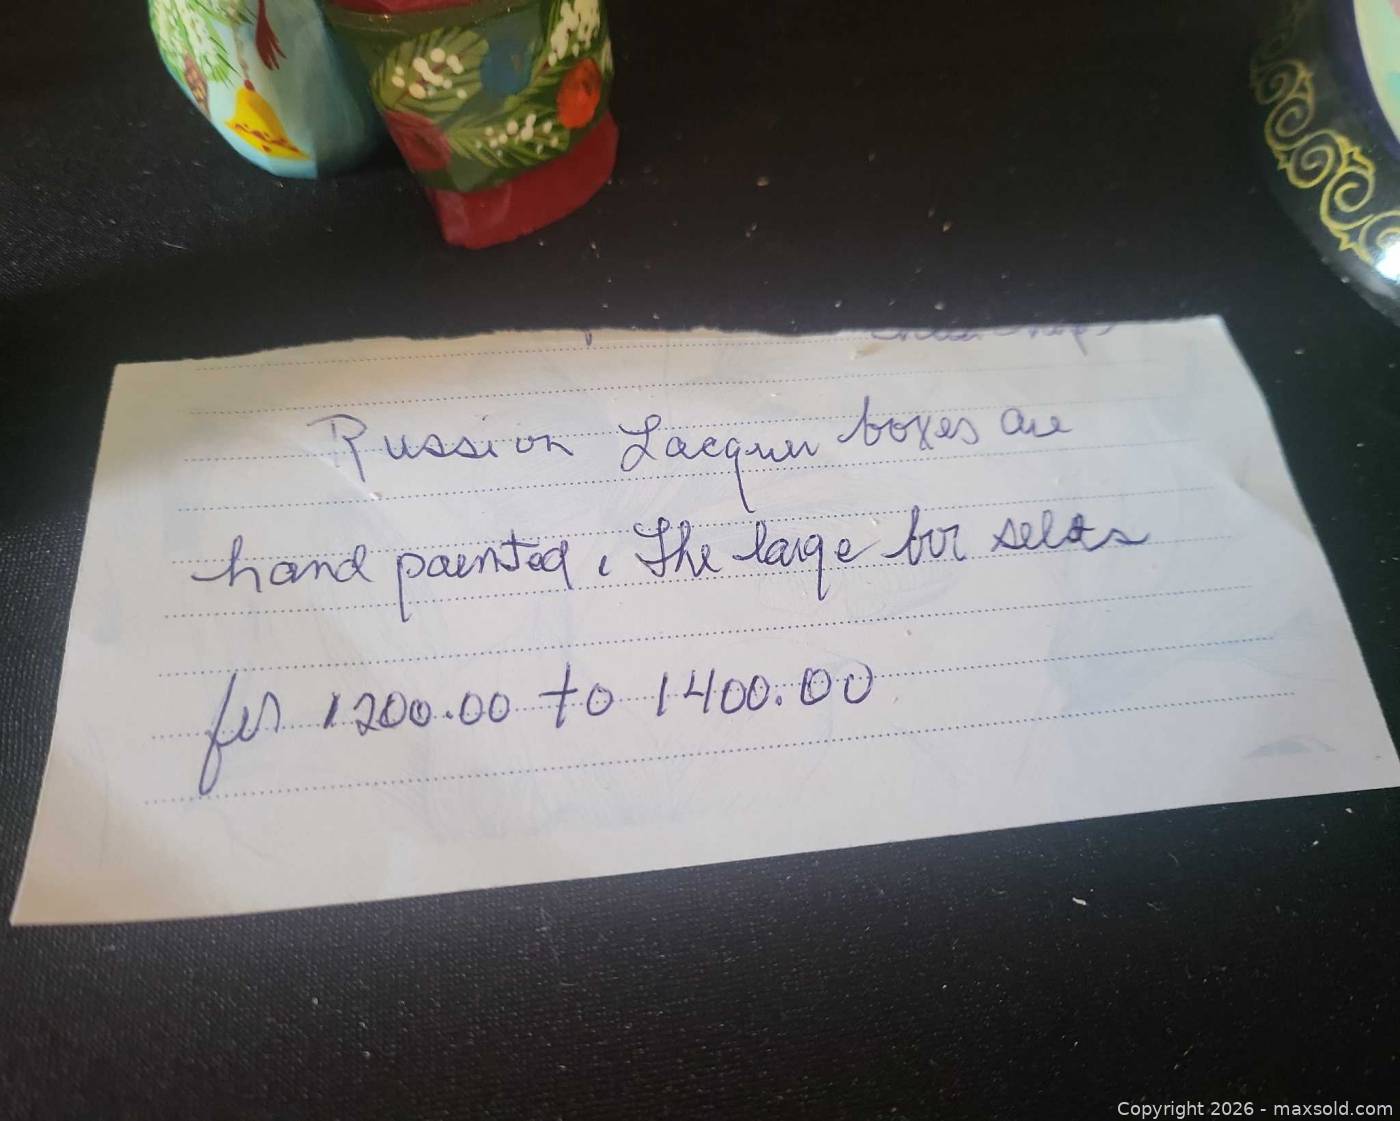 Russion Lacquer boxes are
hand paented. The large box sells
for 1200.00 to 1400.00
Copyright 2026 - maxsold.com